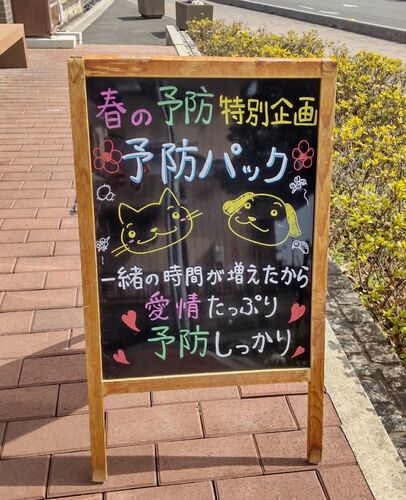 春の予防特別企画
予防パック
一緒の時間が増えたから
愛情たっぷり
予防しっかり